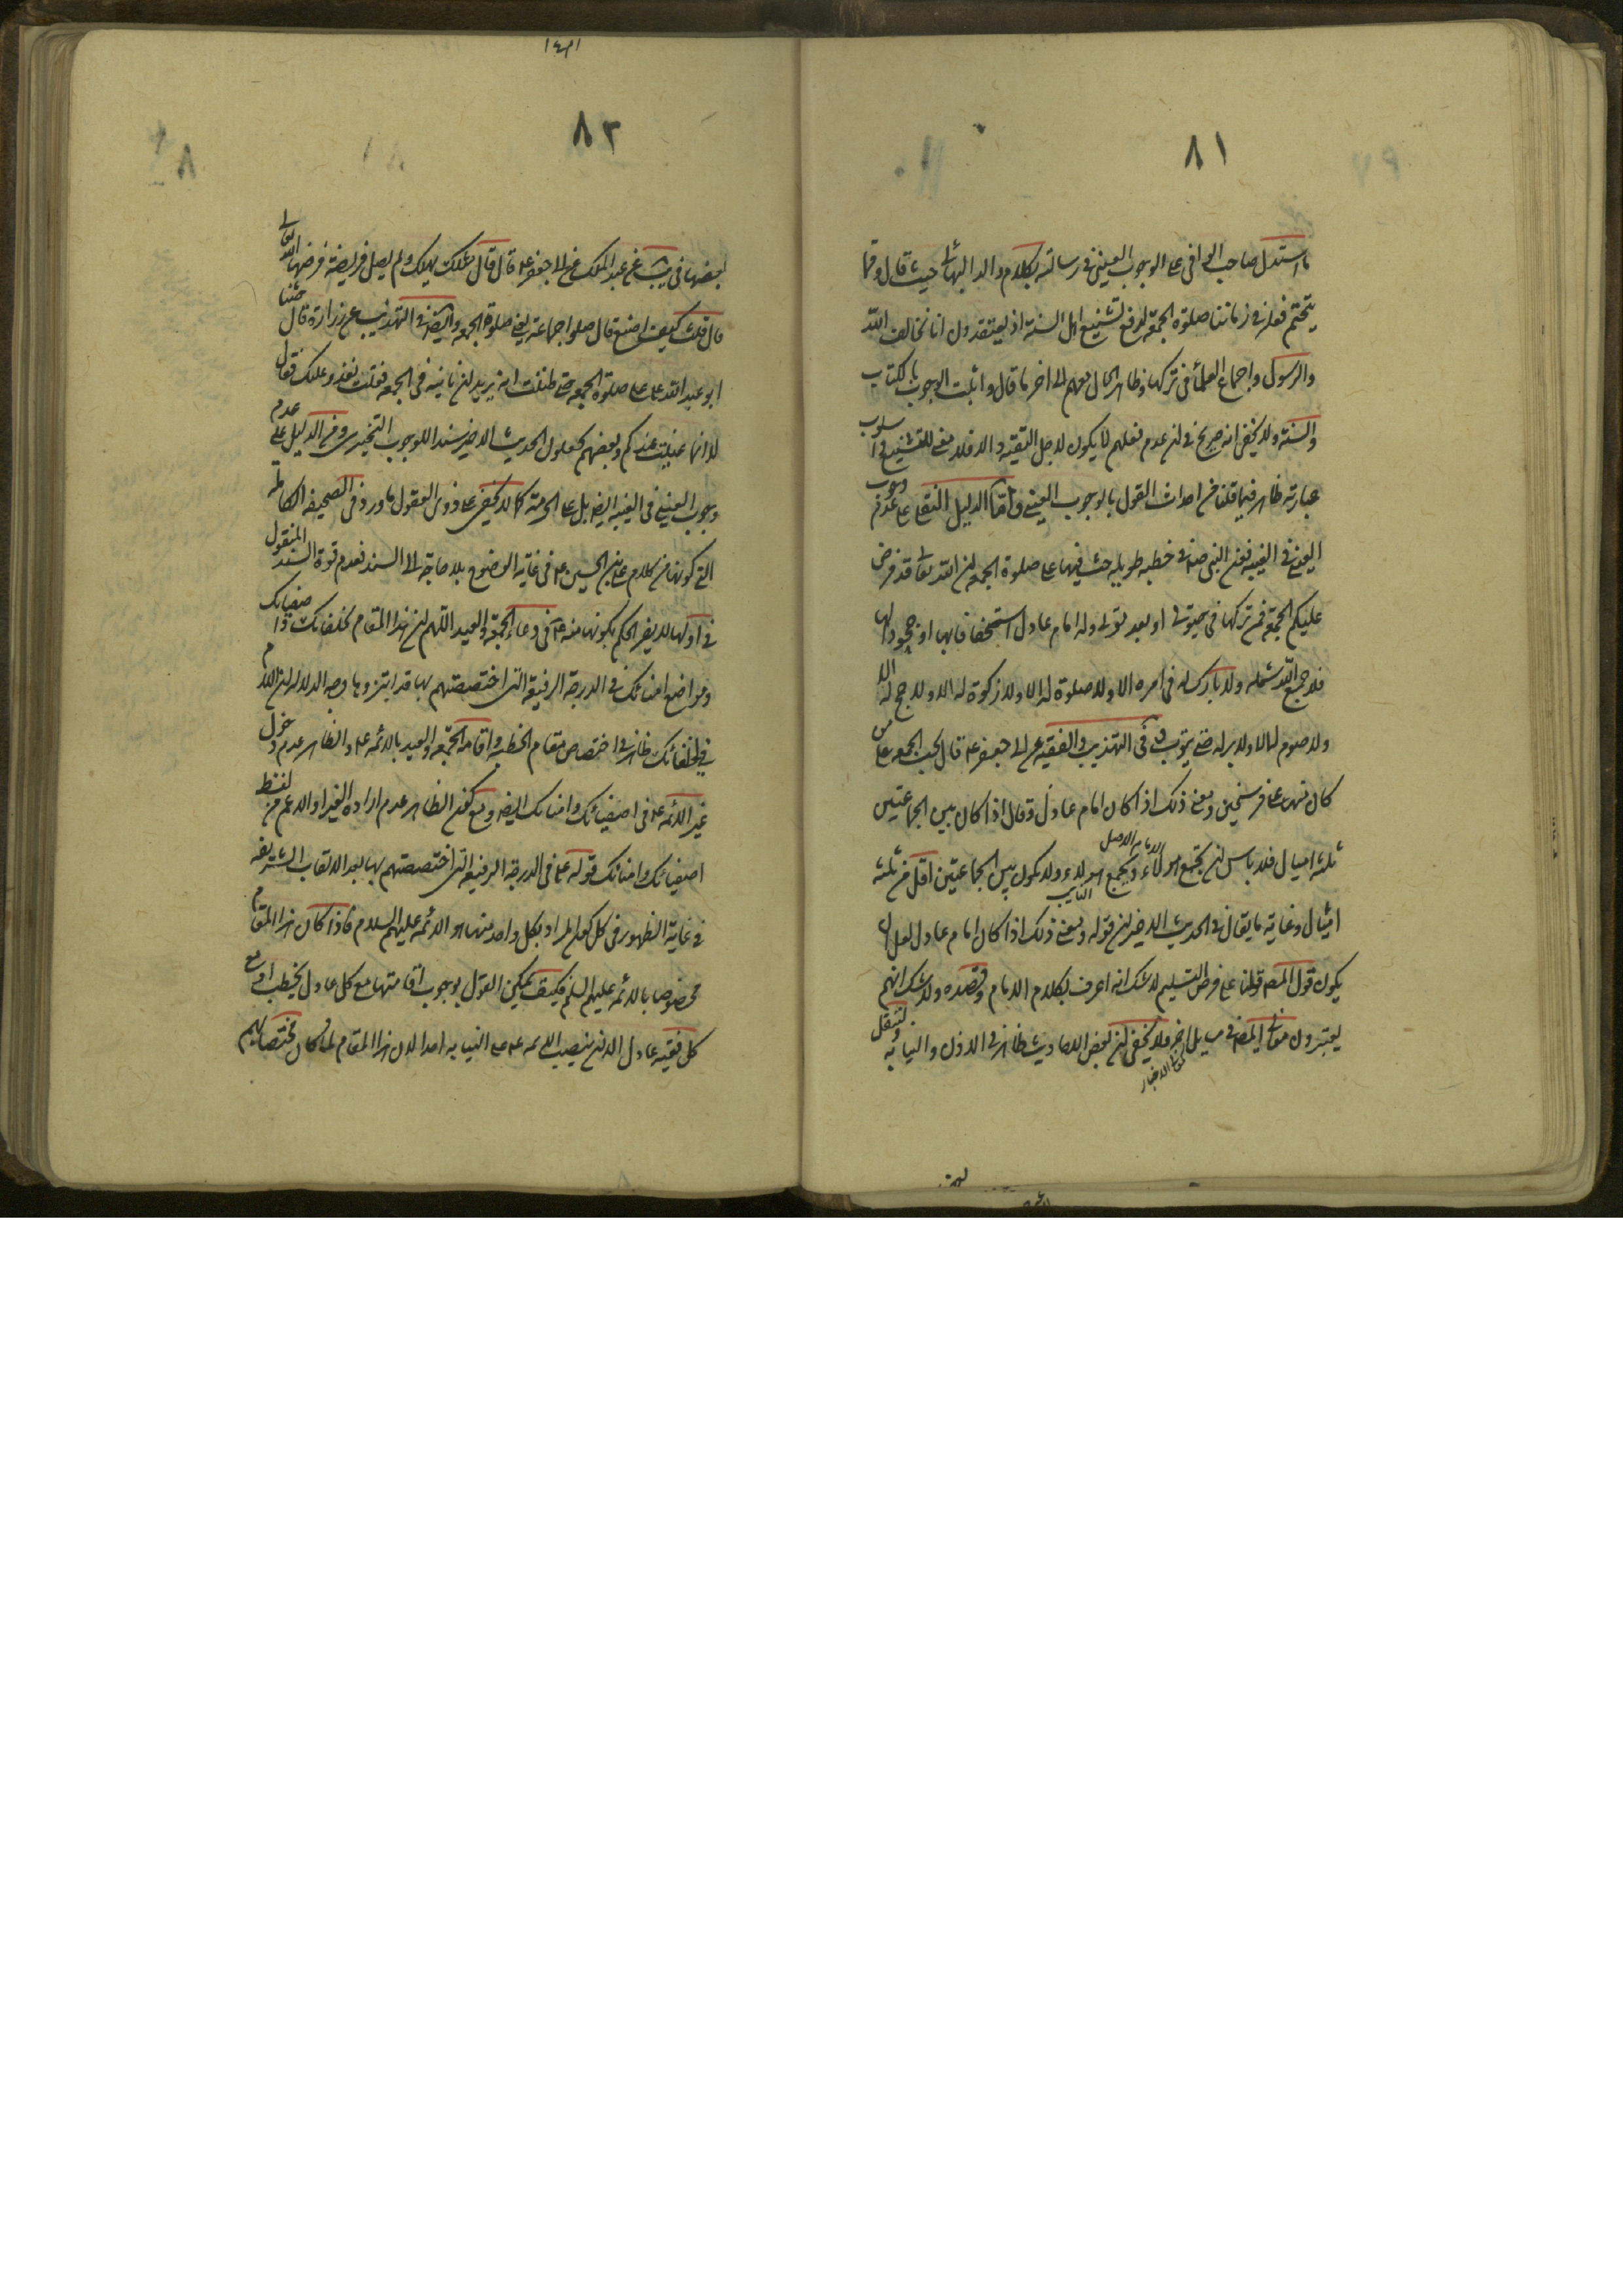 ٨١
ما استدل صاحب الوافى على الوجوب العينى فى رسالته بكلام والد البهائى حيث قال ومما
يتحتم فعله فى زماننا صلوة الجمعة لدفع تشنيع اهل السنة اذ يعتقدون انا نخالف الله
والرسول واجماع العلماء فى تركها وظاهر الحال معهم الى اخر ما قال واثبت الوجوب بالكتاب
والسنة ولا يخفى انه صريح فى ان عدم فعلهم لا يكون لاجل التقية والا فلا معنى للتشنيع و اسلوب
عبارته ظاهر فيما قلنا من احداث القول بالوجوب العينى واما الدليل النقلى على عدم وجوب
العينى فى الغيبة فعن النبى ص فى خطبة طويلة حث فيها على صلوة الجمعة ان الله تعالى قد فرض
عليكم الجمعة فمن تركها فى حيوتى او بعد موتى وله امام عادل استخفافا بها او جحودا لها
فلا جمع الله شمله ولا بارك له فى امره الا ولا صلوة له الا ولا زكوة له الا ولا حج له الا
ولا صوم له الا ولا بر له حتى يتوب فى التهذيب والفقيه عن ابى جعفر ع قال تجب الجمعة على من
كان منها على فرسخين ومعنى ذلك اذا كان امام عادل وقال اذا كان بين الجماعتين
ثلثة اميال فلا باس ان يجتمع هولاء ويجمع هولاء ولا يكون بين الجماعتين اقل من ثلثة
اميال وغاية ما يقال فى الحديث الاخير ان قوله ومعنى ذلك اذا كان امام عادل لعل ان
يكون قول المص قولنا على فرض التسليم لا شك انه اعرف بكلام الامام وقصده ولا شك انهم
يعتبرون فلا يخفى ان بعض الاحاديث ظاهر فى الاذن والنيابة ولننقل
٨٢
بعضها فى يب عن عبد الملك عن ابى جعفر ع قال قال مثلك يهلك ولم يصل فريضة فرضها الله تعالى
قال قلت كيف اصنع قال صلوا جماعة يعنى صلوة الجمعة وايضا فى التهذيب عن زرارة قال حثنا
ابو عبد الله ع على صلوة الجمعة حتى ظننت انه يريد ان ناتيه فى الجمعة فقلت نغدو عليك فقال
لا انما عنيت عندكم وبعضهم يجعلون الحديث الاخير سندا للوجوب التخييرى ومن الدليل على عدم
وجوب العينى فى الغيبة ايضا بل على الحرمة كما لا يخفى على ذوى العقول ما ورد فى الصحيفة الكاملة
التى كونها من كلام على بن الحسين ع فى غاية الوضوح بلا حاجة الى السند فعدم قوة السند المنقول
فى اولها لا يضر الحكم بكونها منه ع فى دعاء الجمعة والعيد اللهم ان هذا المقام لخلفائك واصفيائك
ومواضع امنائك فى الدرجة الرفيعة التى اختصصتهم بها قد ابتزوها وجه الدلالة ان اللام
فى لخلفائك ظاهر فى اختصاص مقام الخطبة واقامة الجمعة والعيد بالائمة ع والظاهر عدم دخول
غير الائمة ع فى اصفيائك وامنائك ايضا ومع كون الظاهر عدم ارادة الغير او الاعم من لفظ
اصفيائك وامنائك قوله ع فى الدرجة الرفيعة التى اختصصتهم بها بعد الالقاب الشريفة
فى غاية الظهور فى كون المراد بكل واحد منها هو الائمة عليهم السلام فاذا كان هذا المقام
مخصوصا بالائمة عليهم السلم فكيف يمكن القول بوجوب اقامتها مع كل عادل يخطب او مع
كل فقيه عادل الا ان ينصب الائمة ع على النيابة احدا لان هذا المقام لما كان مختصا بهم